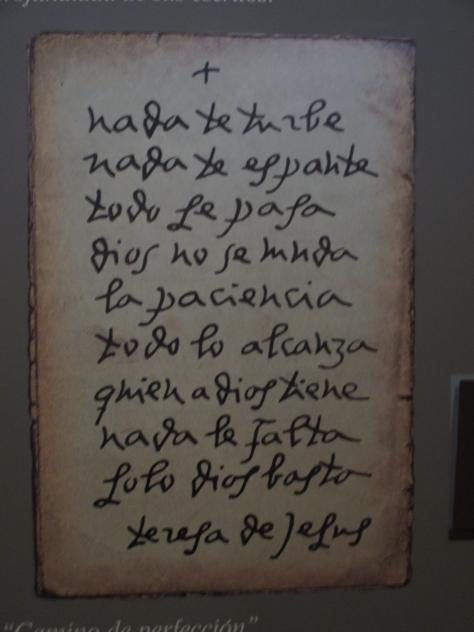 profundidad de sus escritos.
+
nada te turbe
nada te espante
todo se pasa
dios no se muda
la paciencia
todo lo alcanza
quien a dios tiene
nada le falta
solo dios basta
teresa de Jesus
"Camino de perfección"